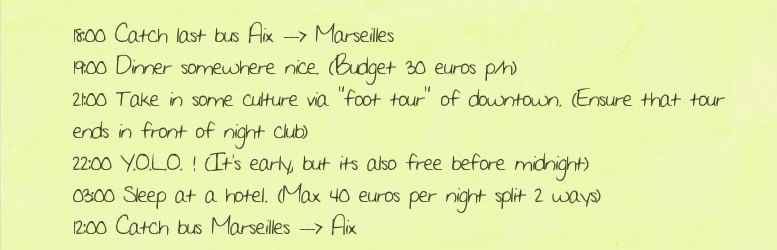 18:00 Catch last bus Aix —> Marseilles
19:00 Dinner somewhere nice. (Budget 30 euros p/h)
21:00 Take in some culture via "foot tour" of downtown. (Ensure that tour
ends in front of night club)
22:00 Y.O.L.O. ! (It's early, but its also free before midnight)
03:00 Sleep at a hotel. (Max 40 euros per night split 2 ways)
12:00 Catch bus Marseilles —> Aix